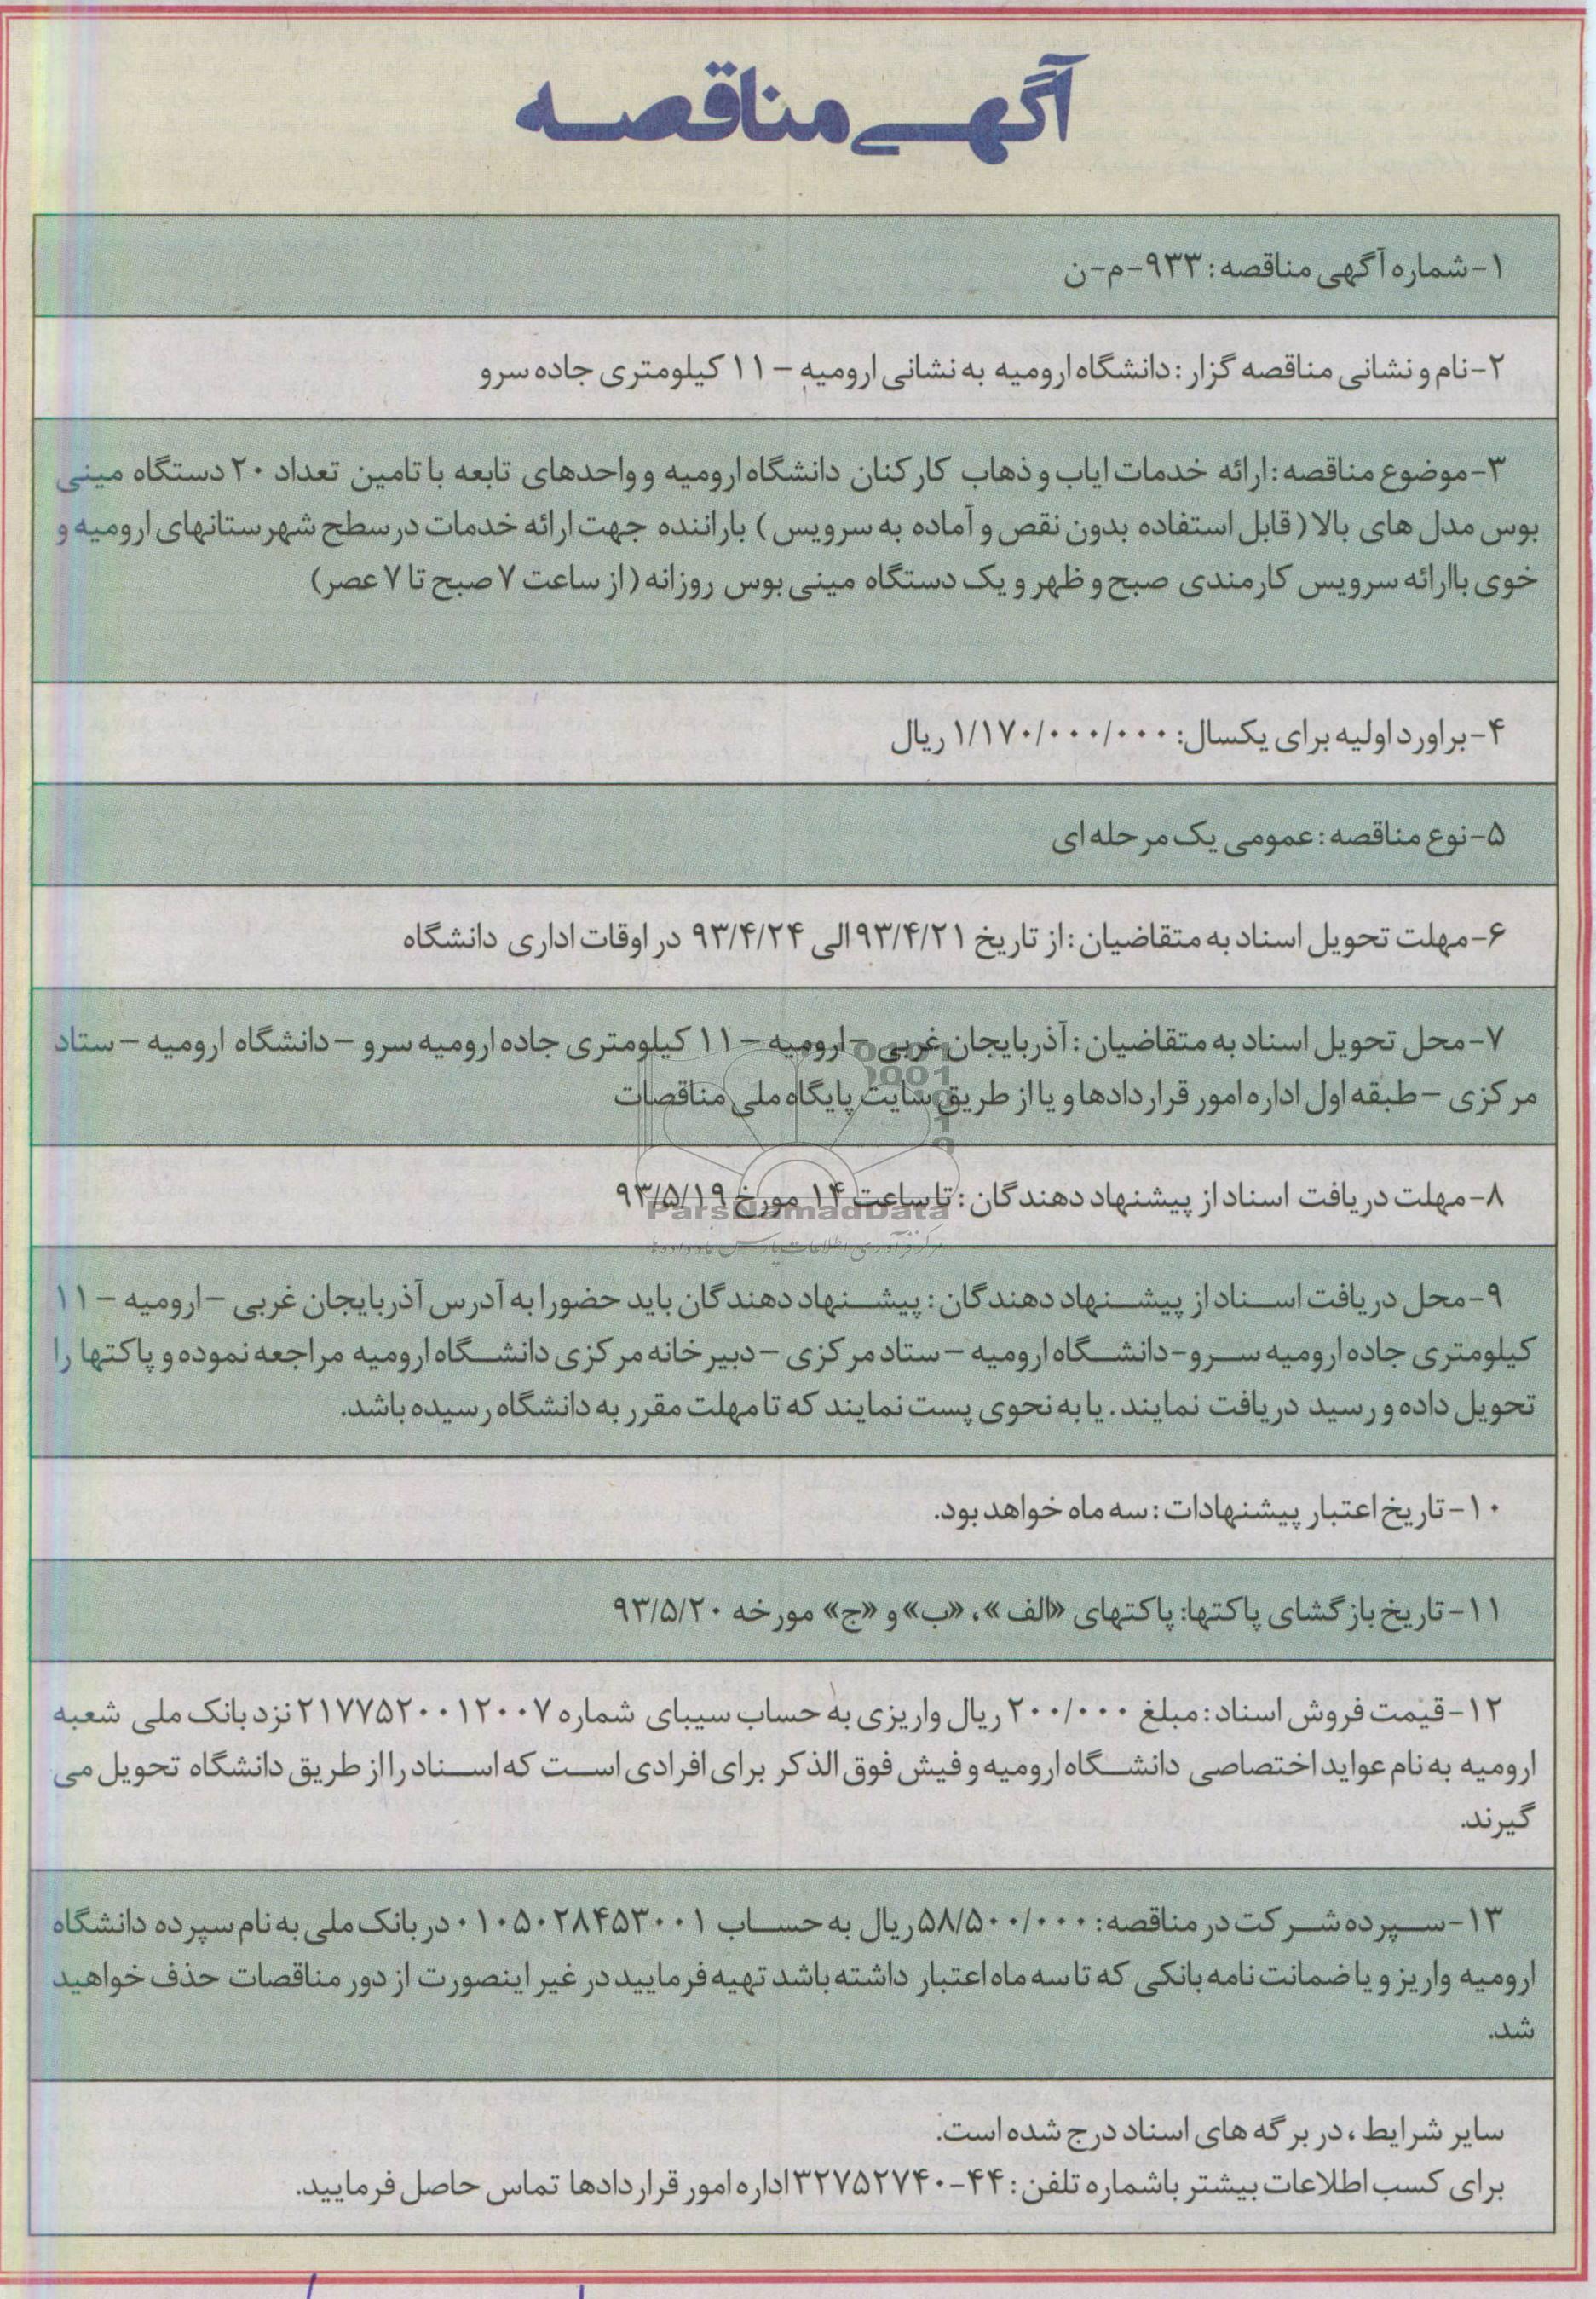 آگهی مناقصه
۱-شماره آگهی مناقصه: ۹۳۳-م-ن
۲-نام و نشانی مناقصه گزار: دانشگاه ارومیه به نشانی ارومیه – ۱۱ کیلومتری جاده سرو
۳-موضوع مناقصه: ارائه خدمات ایاب و ذهاب کارکنان دانشگاه ارومیه و واحدهای تابعه با تامین تعداد ۲۰ دستگاه مینی
بوس مدل های بالا (قابل استفاده بدون نقص و آماده به سرویس) باراننده جهت ارائه خدمات در سطح شهرستانهای ارومیه و
خوی باارائه سرویس کارمندی صبح و ظهر و یک دستگاه مینی بوس روزانه (از ساعت ۷ صبح تا ۷ عصر)
۴-براورد اولیه برای یکسال: ۱/۱۷۰/۰۰۰/۰۰۰ ریال
۵-نوع مناقصه: عمومی یک مرحله ای
۶-مهلت تحویل اسناد به متقاضیان: از تاریخ ۹۳/۴/۲۱ الی ۹۳/۴/۲۴ در اوقات اداری دانشگاه
۷-محل تحویل اسناد به متقاضیان: آذربایجان غربی – ارومیه – ۱۱ کیلومتری جاده ارومیه سرو – دانشگاه ارومیه – ستاد
مرکزی – طبقه اول اداره امور قراردادها و یا از طریق سایت پایگاه ملی مناقصات
۸-مهلت دریافت اسناد از پیشنهاد دهندگان: تا ساعت ۱۴ مورخ ۹۳/۵/۱۹
ParsNamadData
۹-محل دریافت اسناد از پیشنهاد دهندگان: پیشنهاد دهندگان باید حضورا به آدرس آذربایجان غربی – ارومیه – ۱۱
کیلومتری جاده ارومیه سرو-دانشگاه ارومیه – ستاد مرکزی – دبیرخانه مرکزی دانشگاه ارومیه مراجعه نموده و پاکتها را
تحویل داده و رسید دریافت نمایند. یا به نحوی پست نمایند که تا مهلت مقرر به دانشگاه رسیده باشد.
۱۰-تاریخ اعتبار پیشنهادات: سه ماه خواهد بود.
۱۱-تاریخ بازگشای پاکتها: پاکتهای «الف»، «ب» و «ج» مورخه ۹۳/۵/۲۰
۱۲-قیمت فروش اسناد: مبلغ ۲۰۰/۰۰۰ ریال واریزی به حساب سیبای شماره ۲۱۷۷۵۲۰۰۱۲۰۰۷ نزد بانک ملی شعبه
ارومیه به نام عواید اختصاصی دانشگاه ارومیه و فیش فوق الذکر برای افرادی است که اسناد را از طریق دانشگاه تحویل می
گیرند.
۱۳-سپرده شرکت در مناقصه: ۵۸/۵۰۰/۰۰۰ ریال به حساب ۰۱۰۵۰۲۸۴۵۳۰۰۱ در بانک ملی به نام سپرده دانشگاه
ارومیه واریز و یا ضمانت نامه بانکی که تا سه ماه اعتبار داشته باشد تهیه فرمایید در غیر اینصورت از دور مناقصات حذف خواهید
شد.
سایر شرایط، در برگه های اسناد درج شده است.
برای کسب اطلاعات بیشتر باشماره تلفن: ۴۴-۳۲۷۵۲۷۴۰ اداره امور قراردادها تماس حاصل فرمایید.